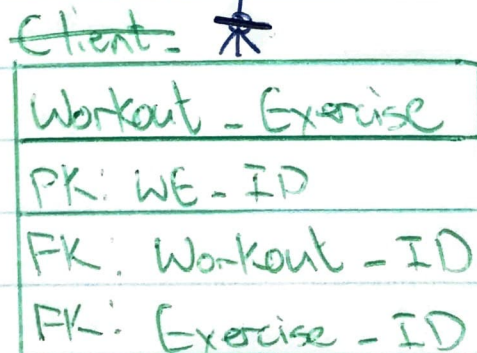 Client-
Workout - Exercise
PK: WE - ID
FK: Workout - ID
FK: Exercise - ID